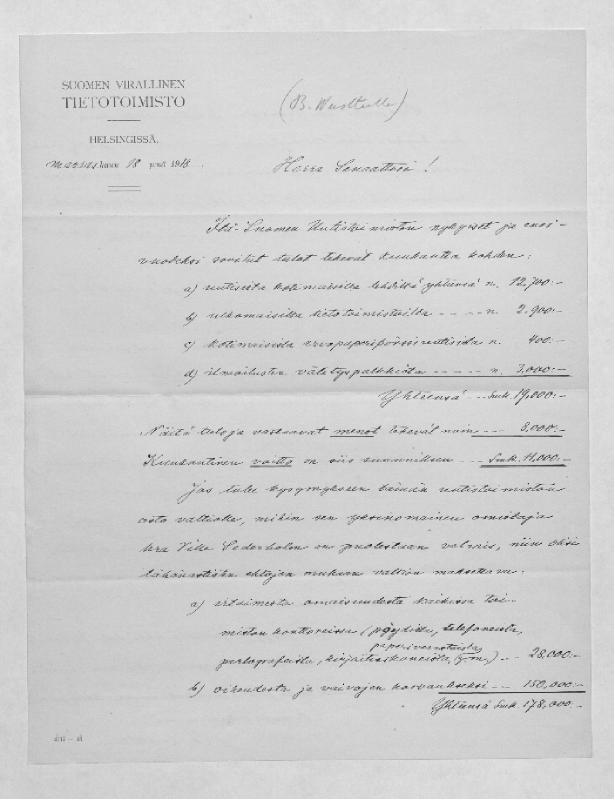 SUOMEN VIRALLINEN
TIETOTOIMISTO
HELSINGISSÄ,
marras kuun 18 pnä 1918.
(B. Wuolteelle)
Herra Senaattori!
Itä-Suomen Uutistoimiston nykyiset ja ensi-
vuodeksi sovitut tulot tekevät kuukautta kohden:
a) uutisista kotimaisilta lehdiltä yhteensä n. 12,700:-
b) ulkomaisilta tietotoimistoilta - - - - n. 2,900:-
c) kotimaisista arvopaperipörssiuutisista n. 400:-
d) ilmoitusten välityspalkkiota - - - - n. 3,000:-
Yhteensä - - Smk. 19,000:-
Näitä tuloja vastaavat menot tekevät noin - - 8,000:-
Kuukautinen voitto on siis suunnilleen - - - Smk. 11,000:-
Jos tulee kysymykseen tämän uutistoimiston
osto valtiolle, mihin sen yksinomainen omistaja
hra Cederholm on puolestaan valmis, niin olisi
ehtojen mukaan valtion maksettava:
a) irtaimesta omaisuudesta kaikissa toi-
miston konttoreissa (pöydistä, telefoneista,
paperivarastoista
kirjoituskoneista, y.m.) - - 28,000:-
b) oikeudesta ja vaivojen korvaukseksi - - 150,000:-
Yhteensä Smk. 178,000:-